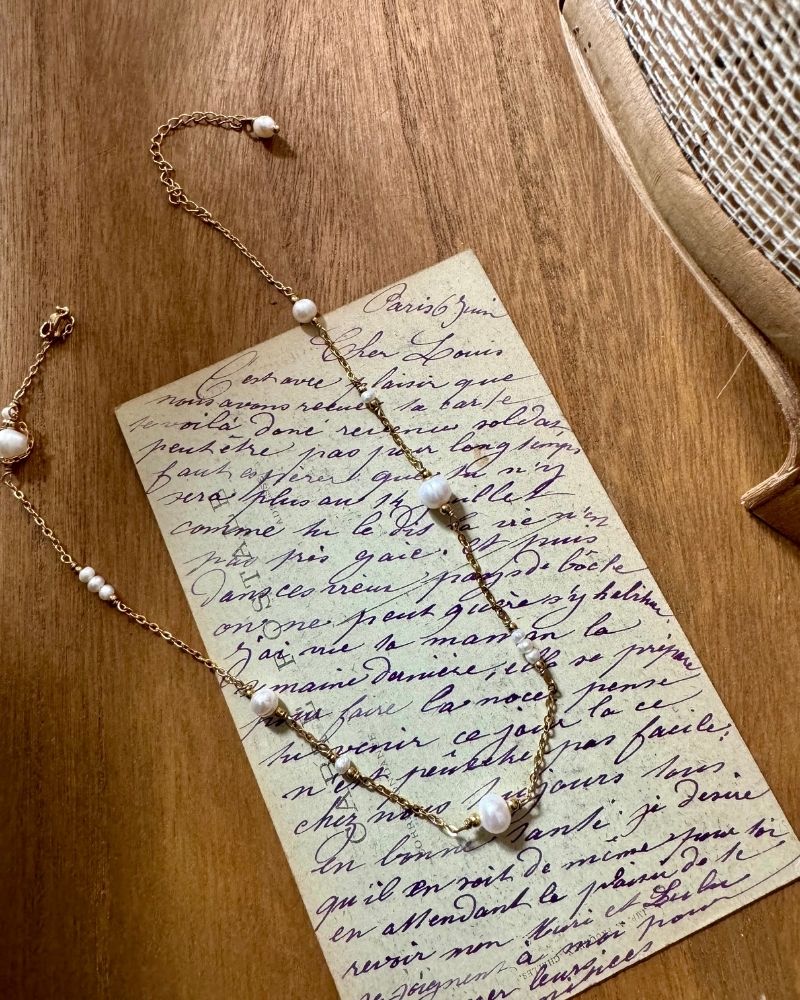 Paris 6 Juin
Cher Louis
C'est avec plaisir que
nous avons recue ta carte
te voilà donc revenu soldat
peut être pas pour longtemps
faut espérer que tu n'y
sera plus au 14 juillet
comme tu le dis la vie n'en
pas très gaie. et puis
dans ces vieux pays de
on ne peut guère s'y
j'ai vue ta maman la
semaine dernière, elle se prépare
pour faire la noce, pense
tu venir ce jour la ce
n'est peut être pas facile;
chez nous toujours tous
en bonne santé. je désire
qu'il en soit de même pour toi
en attendant le plaisir de te
revoir mon et Lulu
se joignent à moi pour
CARTE POSTALE